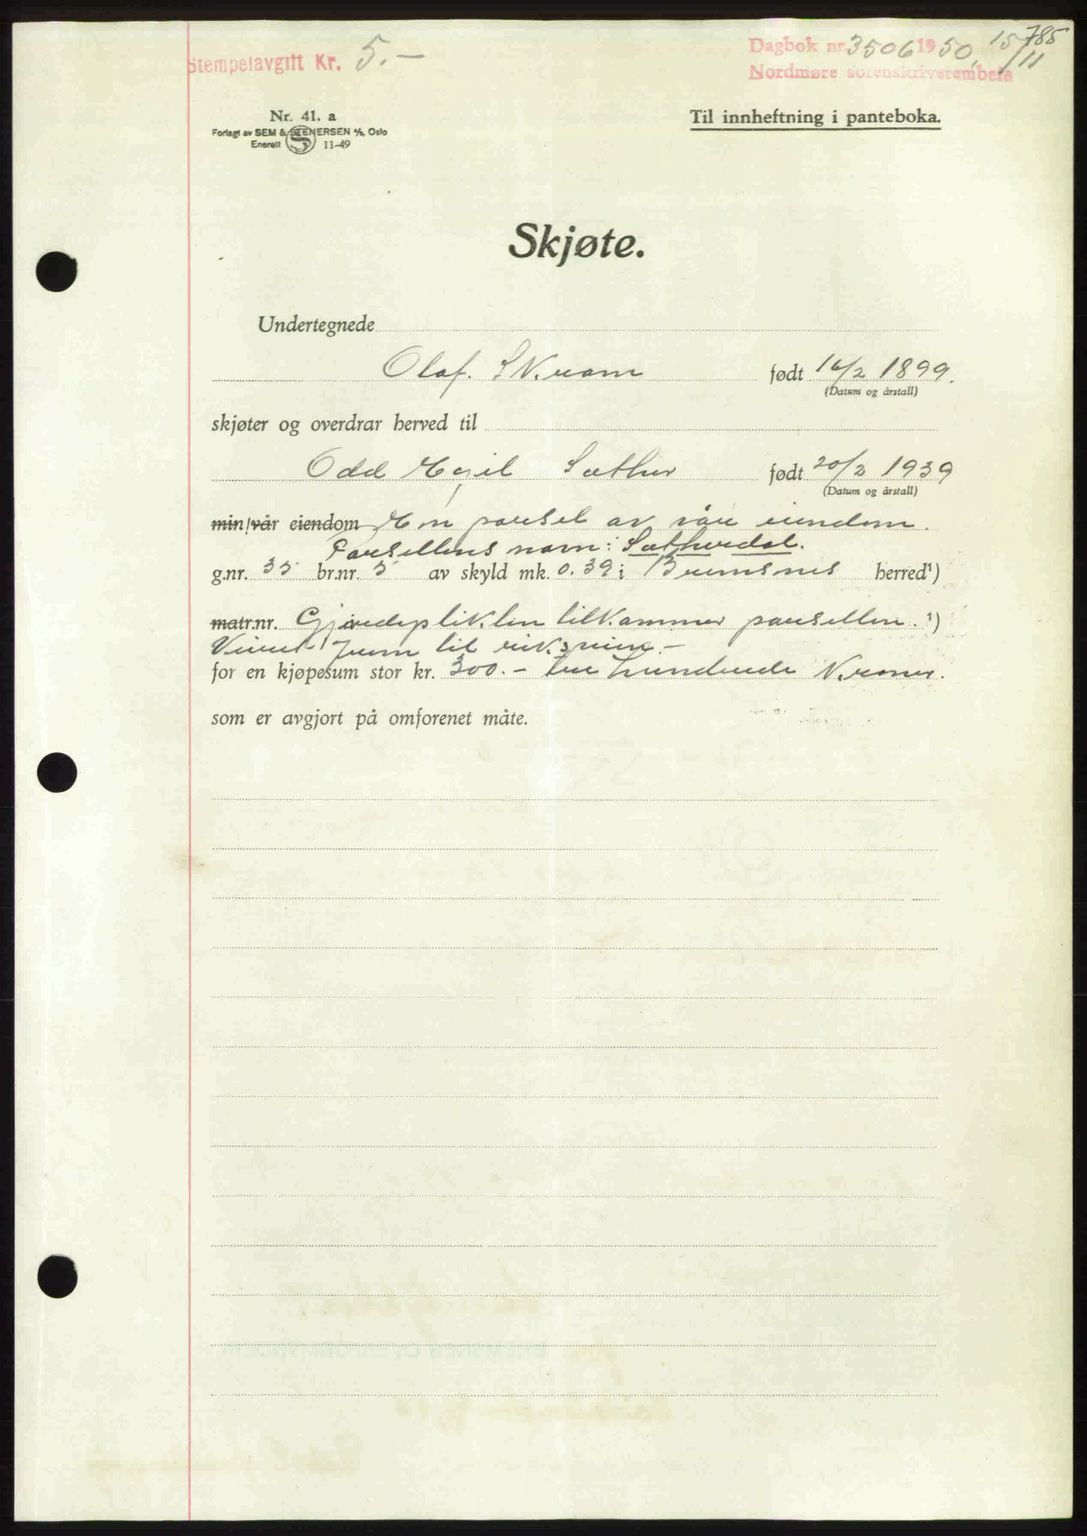 Stempelavgift Kr. 5.-
Dagbok nr 3506 1950, 15/11
785
Nordmøre sorenskriverembete
Nr. 41. a
Forlagt av SEM & STENERSEN A/S, Oslo
Enerett 11-49
Til innheftning i panteboka.
Skjøte.
Undertegnede
Olaf. født 16/2 1899.
(Datum og årstall)
skjøter og overdrar herved til
Odd Egil Sæther født 20/2 1939
(Datum og årstall)
min/vår eiendom En parsel av våre eiendom.
Parsellens navn: Sætherdal.
g.nr. 35 br.nr. 5 av skyld mk. 0.39 i Bremsnes herred¹)
matr.nr. Gjerdeplikten tilkommer parsellen. ¹)
frem til riksveien.-
for en kjøpesum stor kr. 300.- tre hundrede Kroner.
som er avgjort på omforenet måte.